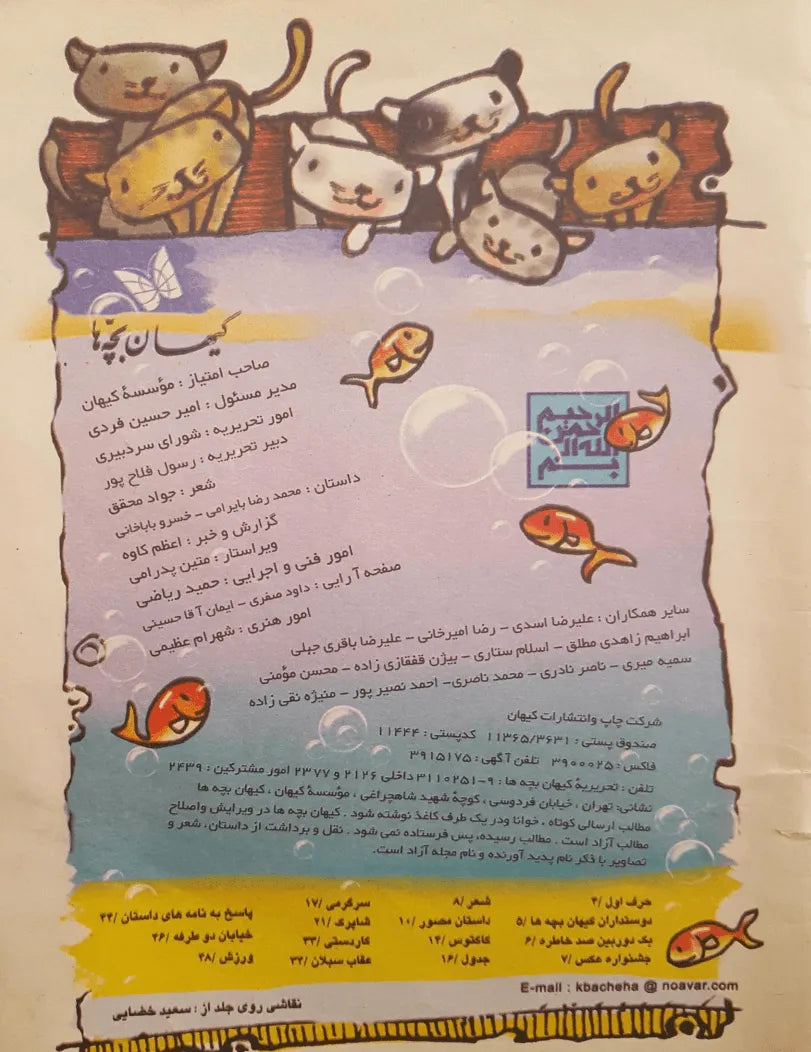 کیهان بچه‌ها
بسم الله الرحمن الرحیم
صاحب امتیاز : مؤسسهٔ کیهان
مدیر مسئول : امیر حسین فردی
امور تحریریه : شورای سردبیری
دبیر تحریریه : رسول فلاح پور
شعر : جواد محقق
داستان : محمد رضا بایرامی - خسرو باباخانی
گزارش و خبر : اعظم کاوه
ویراستار : متین پدرامی
امور فنی و اجرایی : حمید ریاضی
صفحه آرایی : داود صفری - ایمان آقا حسینی
امور هنری : شهرام عظیمی
سایر همکاران : علیرضا اسدی - رضا امیرخانی - علیرضا باقری جبلی
ابراهیم زاهدی مطلق - اسلام ستاری - بیژن قفقازی زاده - محسن مؤمنی
سمیه میری - ناصر نادری - محمد ناصری - احمد نصیر پور - منیژه نقی زاده
شرکت چاپ وانتشارات کیهان
صندوق پستی : ۱۱۳۶۵/۳۶۳۱ کدپستی : ۱۱۴۴۴
فاکس : ۳۹۰۰۰۲۵ تلفن آگهی : ۳۹۱۵۱۷۵
تلفن : تحریریهٔ کیهان بچه ها : ۹-۳۱۱۰۲۵۱ داخلی ۲۱۲۶ و ۲۳۷۷ امور مشترکین : ۲۴۳۹
نشانی: تهران ، خیابان فردوسی ، کوچهٔ شهید شاهچراغی ، مؤسسهٔ کیهان ، کیهان بچه ها
مطالب ارسالی کوتاه ، خوانا ودر یک طرف کاغذ نوشته شود . کیهان بچه ها در ویرایش واصلاح
مطالب آزاد است . مطالب رسیده، پس فرستاده نمی شود . نقل و برداشت از داستان، شعر و
تصاویر با ذکر نام پدید آورنده و نام مجله آزاد است.
حرف اول /۴
دوستداران کیهان بچه ها /۵
یک دوربین صد خاطره /۶
جشنواره عکس /۷
شعر /۸
داستان مصور /۱۰
کاکتوس /۱۴
جدول /۱۶
سرگرمی /۱۷
شاپرک /۲۱
کاردستی /۳۳
عقاب سبلان /۳۴
پاسخ به نامه های داستان /۴۴
خیابان دو طرفه /۴۶
ورزش /۴۸
E-mail : kbacheha @ noavar.com
نقاشی روی جلد از : سعید خضایی